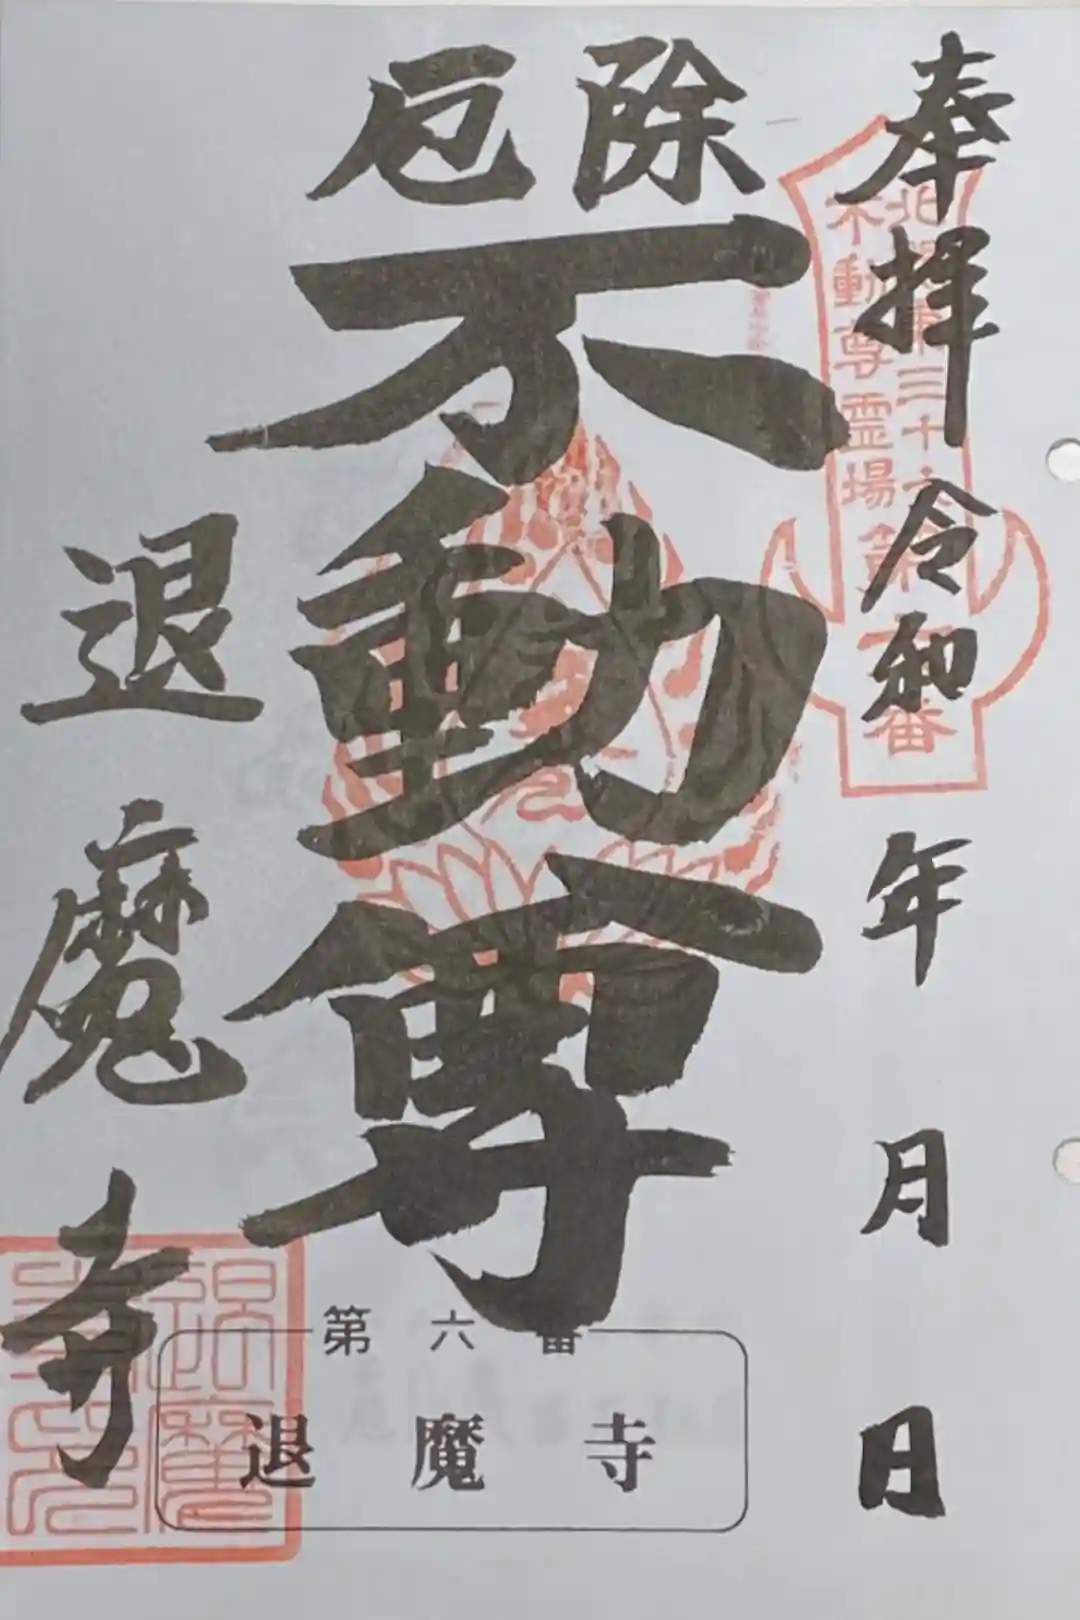 奉拝 令和 年 月 日
北関東三十六
不動尊霊場第六番
厄除
不動尊
退魔寺
第六番
退魔寺